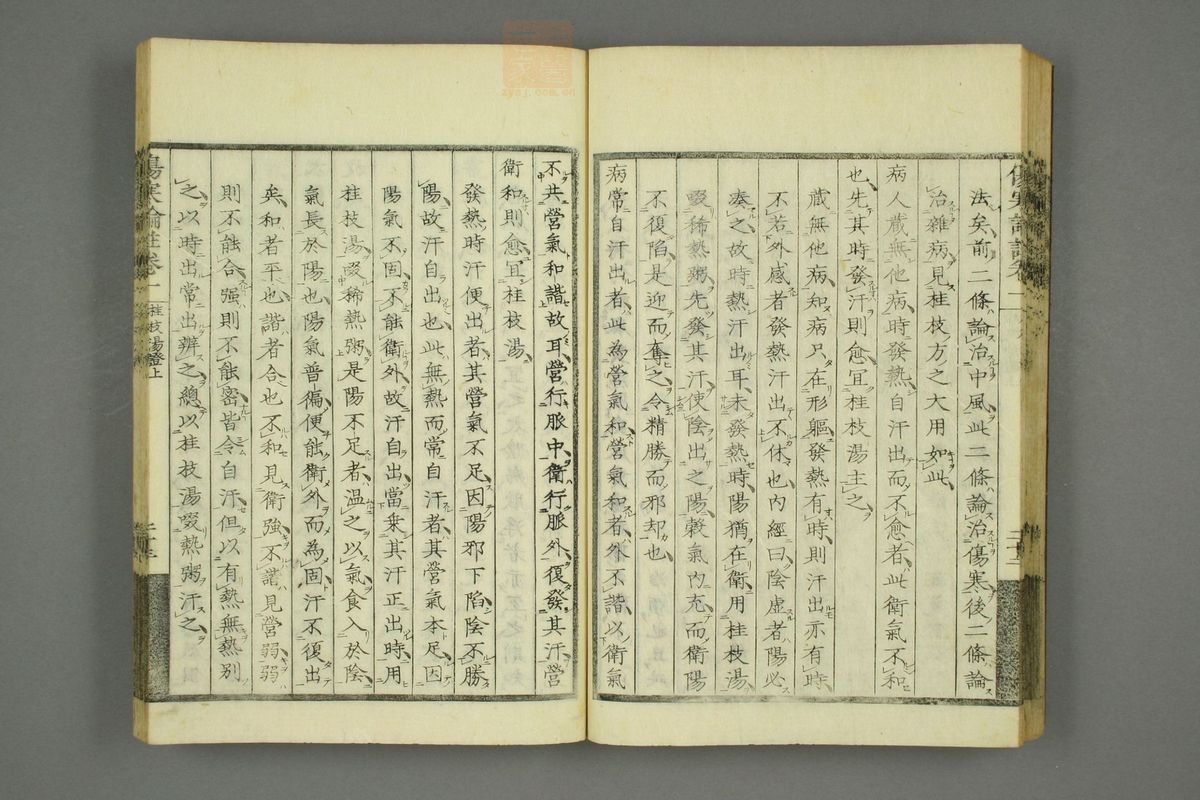 法矣前二條論治中風此二條論治傷寒後二條論
治雜病見桂枝方之大用如此
病人藏無他病時發熱自汗出而不愈者此衛氣不和
也先其時發汗則愈宜桂枝湯主之
藏無他病知病只在形軀發熱有時則汗出亦有時
不若外感者發熱汗出不休也內經曰陰虛者陽必
湊之故時熱汗出耳未發熱時陽猶在衛用桂枝湯
啜稀熱粥先發其汗使陰出之陽穀氣內充而衛陽
不復陷是迎而奪之令精勝而邪却也
病常自汗出者此為營氣和營氣和者外不諧以衛氣
不共營氣和諧故耳營行脈中衛行脈外復發其汗營
衛和則愈宜桂枝湯
發熱時汗便出者其營氣不足因陽邪下陷陰不勝
陽故汗自出也此無熱而常自汗者其營氣本足因
陽氣不固不能衛外故汗自出當乘其汗正出時用
桂枝湯啜稀熱粥是陽不足者溫之以氣食入於陰
氣長於陽也陽氣普徧便能衛外而為固汗不復出
矣和者平也諧者合也不和見衛強不諧見營弱弱
則不能合强則不能密皆令自汗但以有熱無熱別
之以時出常出辨之總以桂枝湯啜熱粥汗之
傷寒論註卷一
桂枝湯證上
二十三
zysj.com.cn